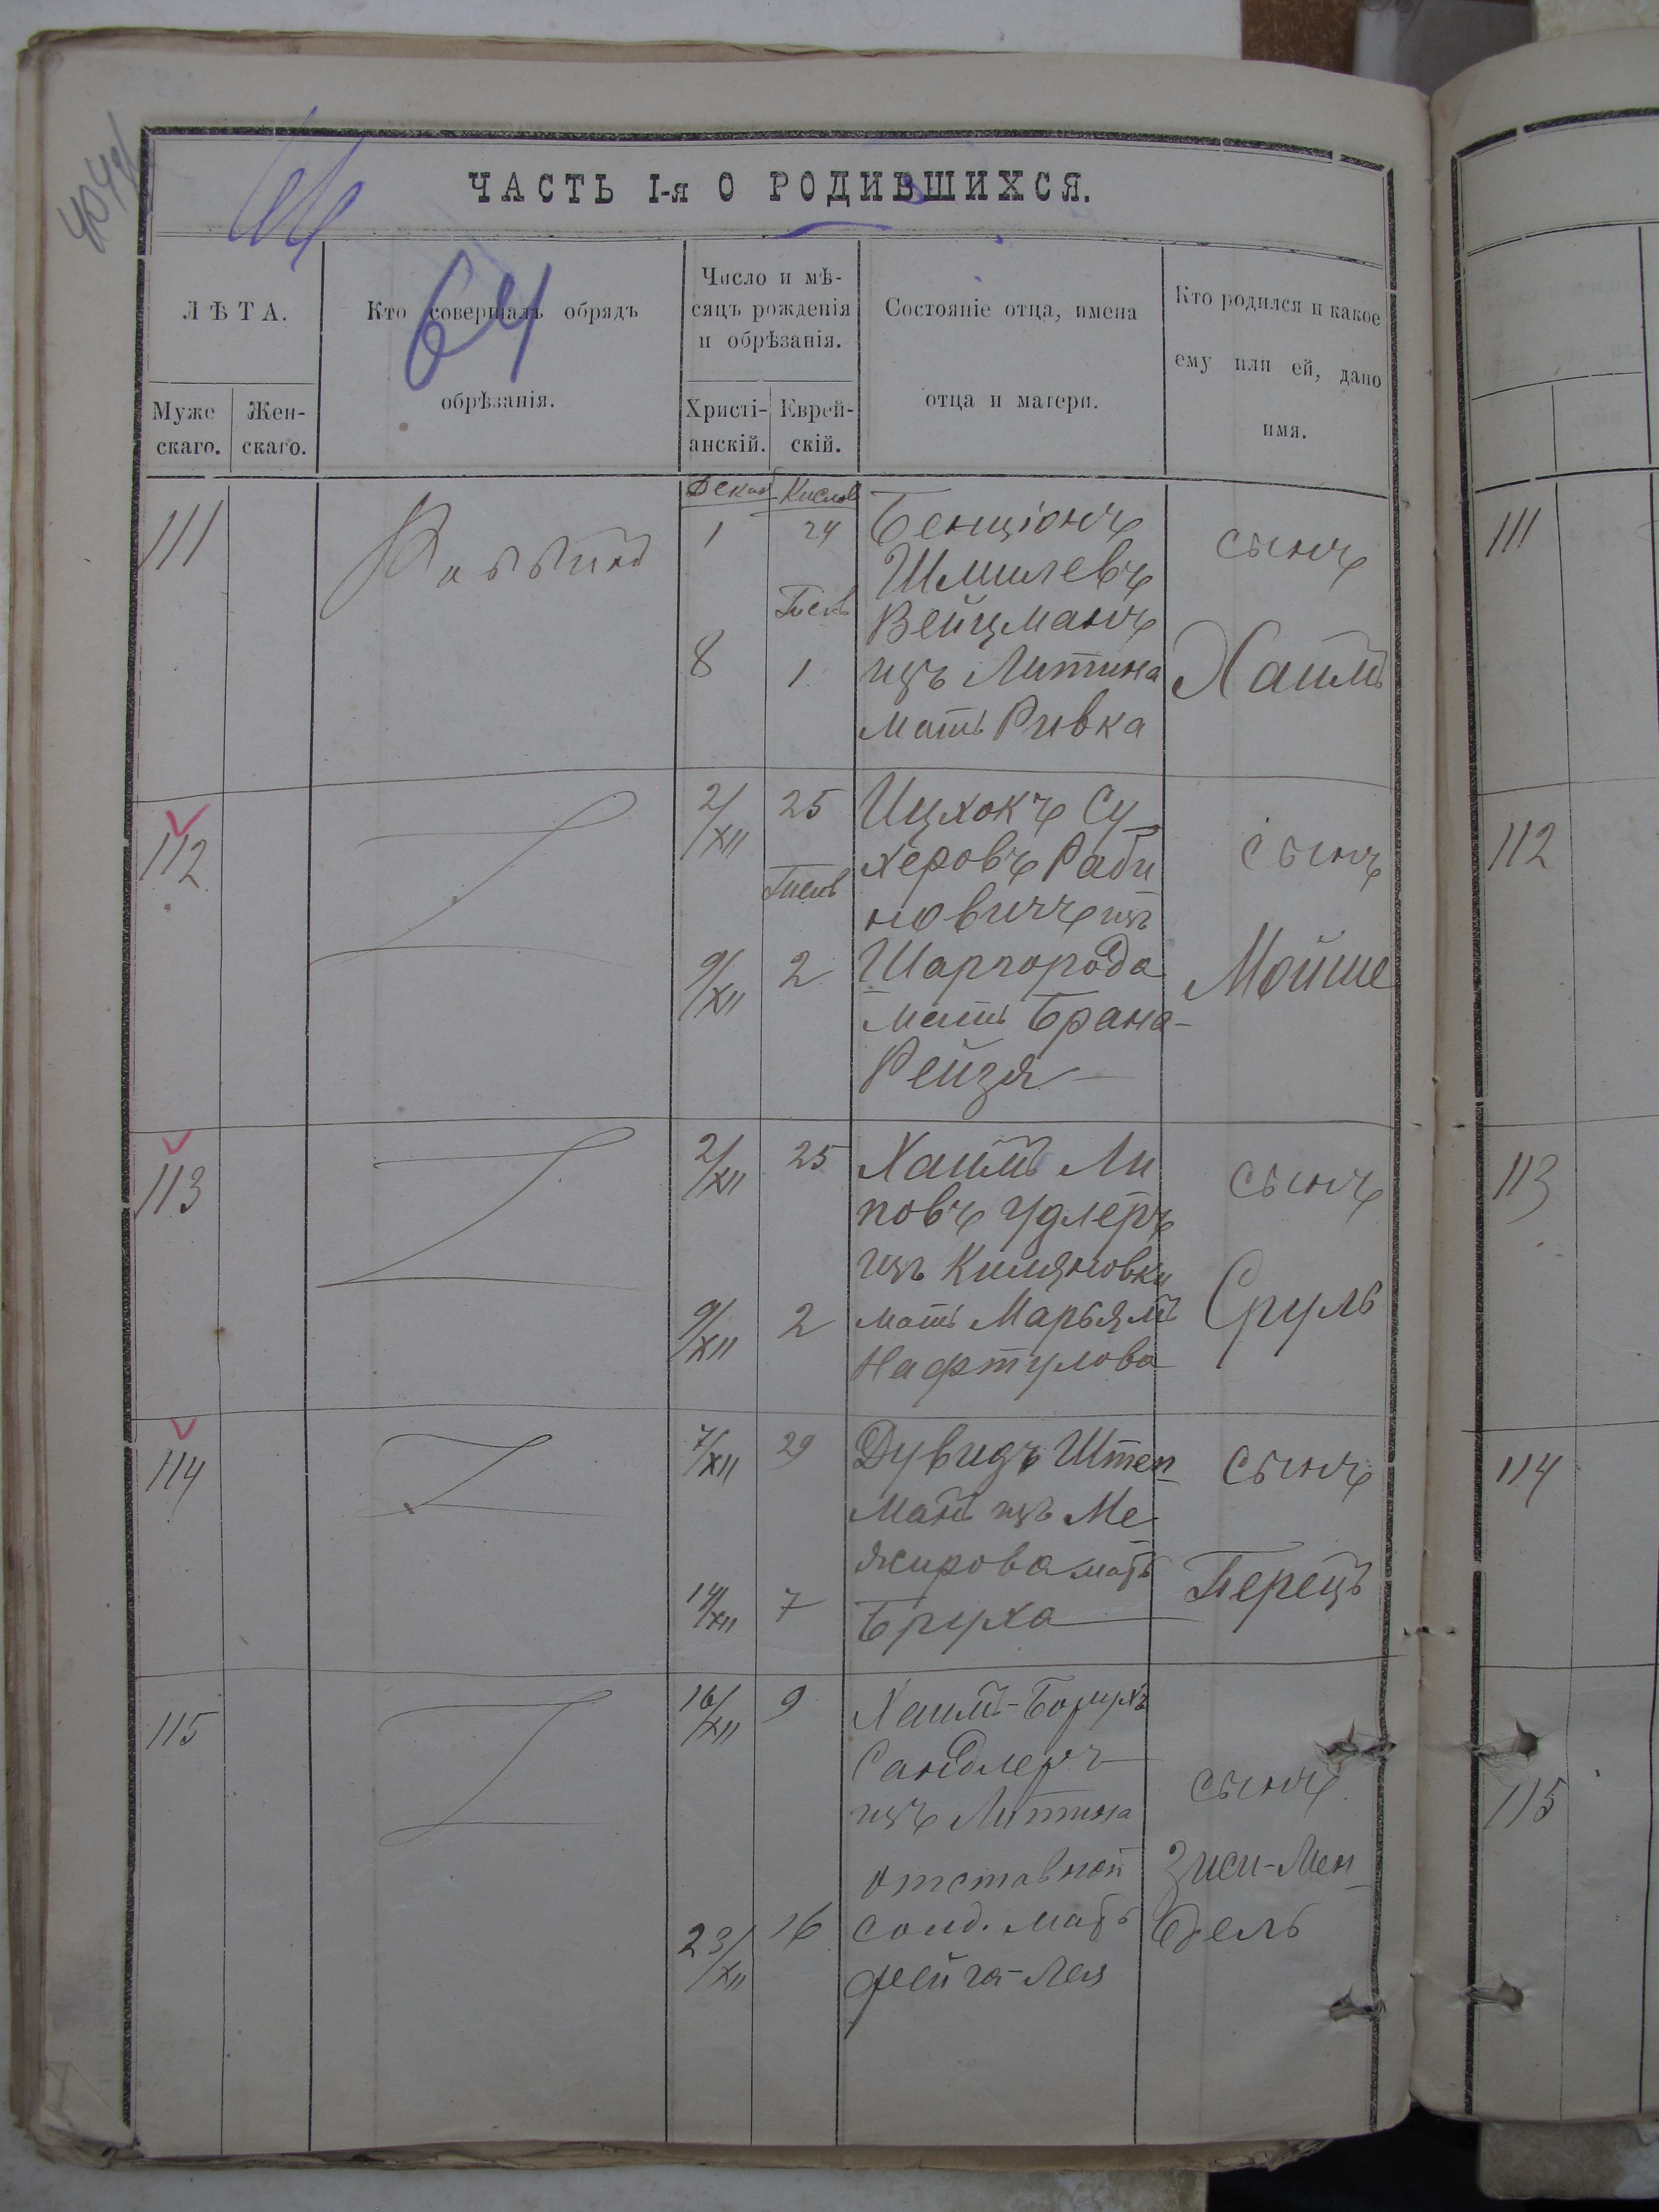 ЧАСТЬ I-я О РОДИВШИХСЯ.
64
ЛѢТА.
Муже
скаго.
Жен-
скаго.
Кто совершалъ обрядъ
обрѣзанія.
Число и мѣ-
сяцъ рожденія
и обрѣзанія.
Христі-
анскій.
Еврей-
скій.
Состояніе отца, имена
отца и матери.
Кто родился и какое
ему или ей, дано
имя.
111
Раввинъ
Декаб
1
8
Кислев
24
1
Бенціонъ
Шмилевъ
Вейцманъ
изъ Литина
мать Ривка
сынъ
Хаимъ
111
112
2/XII
9/XII
25
2
Ицхокъ Су
херовъ Раби
новичъ изъ
Шаргорода
мать Брана-
Рейзя
сынъ
Мойше
112
113
2/XII
9/XII
25
2
Хаимъ Ли
повъ Удлеръ
изъ
мать Марьямъ
Нафтулова
сынъ
Сруль
113
114
7/XII
14/XII
29
7
Дувидъ Штеп
манъ изъ Ме
жирова мать
Бруха
сынъ
Перецъ
114
115
16/XII
23/XII
9
16
Хаимъ-Борухъ
Сандлеръ
изъ Литина
отставной
солд. мать
Фейга-Лея
сынъ
Зиси-Мен
дель
115